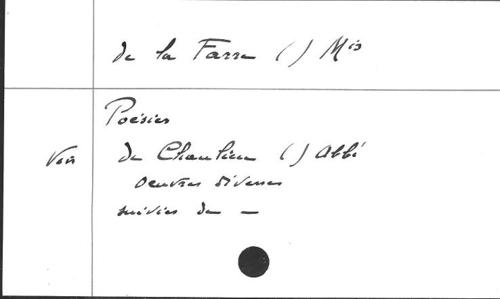 de la Farre ( ) Mis
Poésies
Voir de Chaulieu ( ) Abbé
Oeuvres diverses
suivies de —